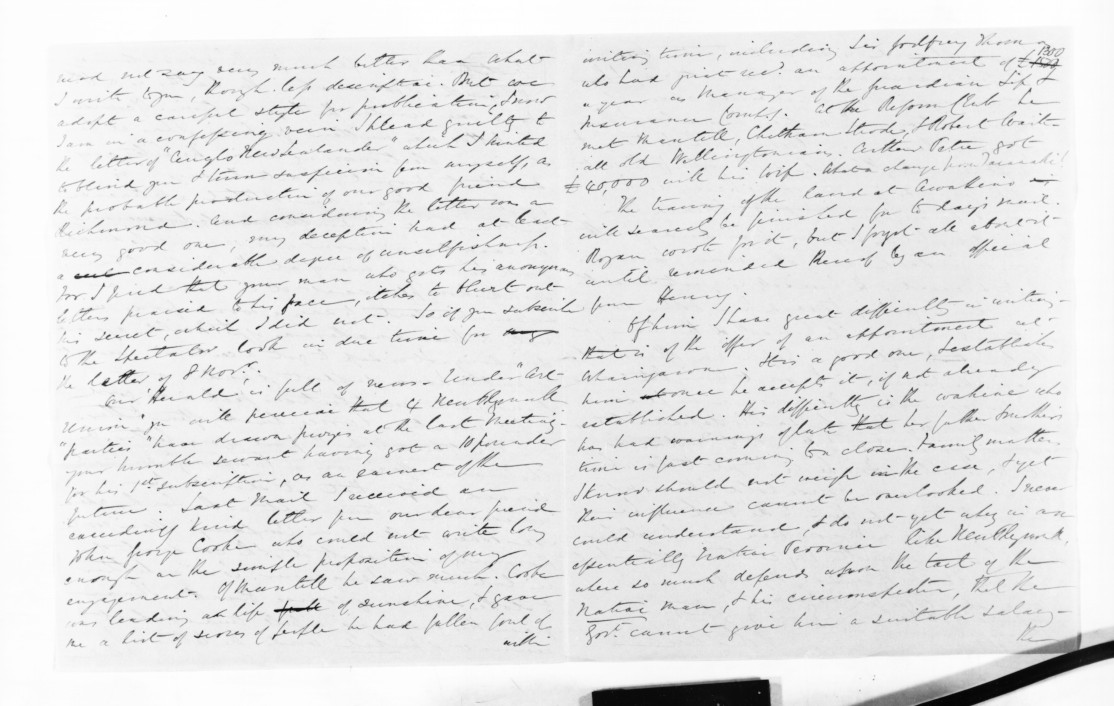 need not say very much better than what
I write to you, though less descriptive. But we
adopt a careful style for publication, & now
I am in a confessing vein I plead guilty to
the letter of "Anglo New Zealander" which I hinted
to blind you & turn suspicion from myself, as
the probable production of our good friend
Richmond. And considering the letter was a
very good one, my deception had at least
a considerable degree of unselfishness.
For I find that your man who gets his anonymous
letters praised to his face, itches to blurt out
his secret which I did not. So if you subscribe
to the Spectator look in due time for
the letter of 8 Novr.
Our Herald is full of news - Under "Art-
Union" you will perceive that 4 New Plymouth
"parties" have drawn prizes at the last meeting -
your humble servant having got a 10 pounder
for his 1st subscription, as an earnest of the
future. Last Mail I received an
exceedingly kind letter from our dear friend
John George Cooke who could not write long
enough on the simple proposition of my
engagement. Of Mantell he saw much. Cooke
was leading a life of sunshine, & gave
me a list of scores of people he had fallen foul of
within
writing time, including Sir Godfrey Thomas
who had just recd. an appointment of £ 1300
a year as Manager of the Guardian Life &
Insurance Compy. At the Reform Club he
met Mantell, Chetham Strode, & Robert Wait-
all old Wellingtonians. Arthur Petre got
£40,000 with his wife. What a change from Taranaki!
The tracing of the land at Awakino
will scarcely be finished for to day's mail.
Rogan wrote for it, but I forgot all about it
until reminded thereof by an official
from Henry.
Of him I have great difficulty in writing -
that is of the offer of an appointment at
Whaingaroa. It is a good one, & establishes
him once he accepts it, if not already
established. His difficulty is the wahine who
has had warnings of late that her father's
time is fast coming to a close. Family matters
I know should not weigh in the case, & yet
their influence cannot be overlooked. I never
could understand, & do not yet why in an
essentially Native Province like New Plymouth,
where so much depends upon the tact of the
Native man, & his circumspection, that the
Govt. cannot give him a suitable salary -